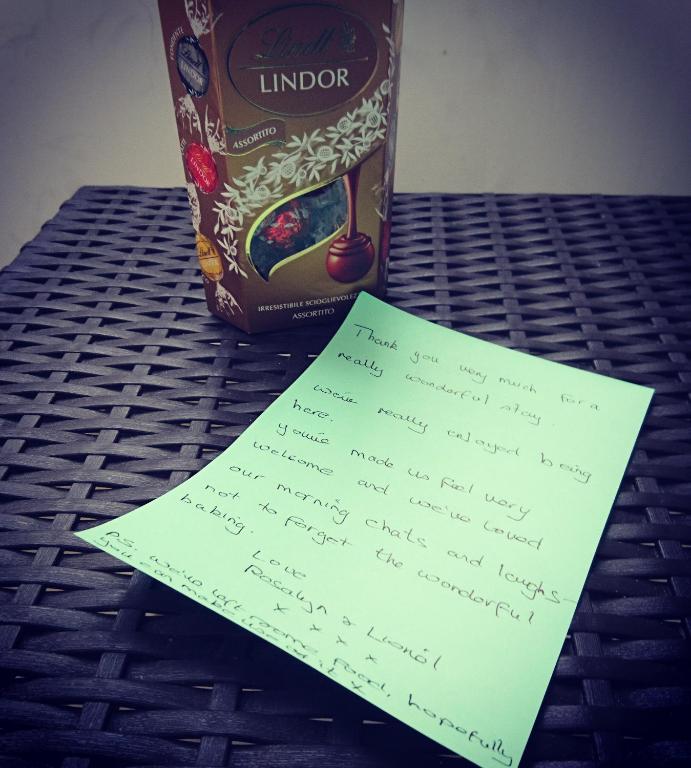 Lindt
LINDOR
ASSORTITO
FONDENTE
Lindt
LINDOR
LINDOR
Lindt
IRRESISTIBILE SCIOGLIEVOLEZZA
ASSORTITO
Thank you very much for a
really wonderful stay.
We've really enjoyed being
here.
You've made us feel very
welcome and we've loved
our morning chats and laughs-
not to forget the wonderful
baking.
Love
Rosalyn & Lionel
x x x x
PS. we've left some food, hopefully
you can make use of it x